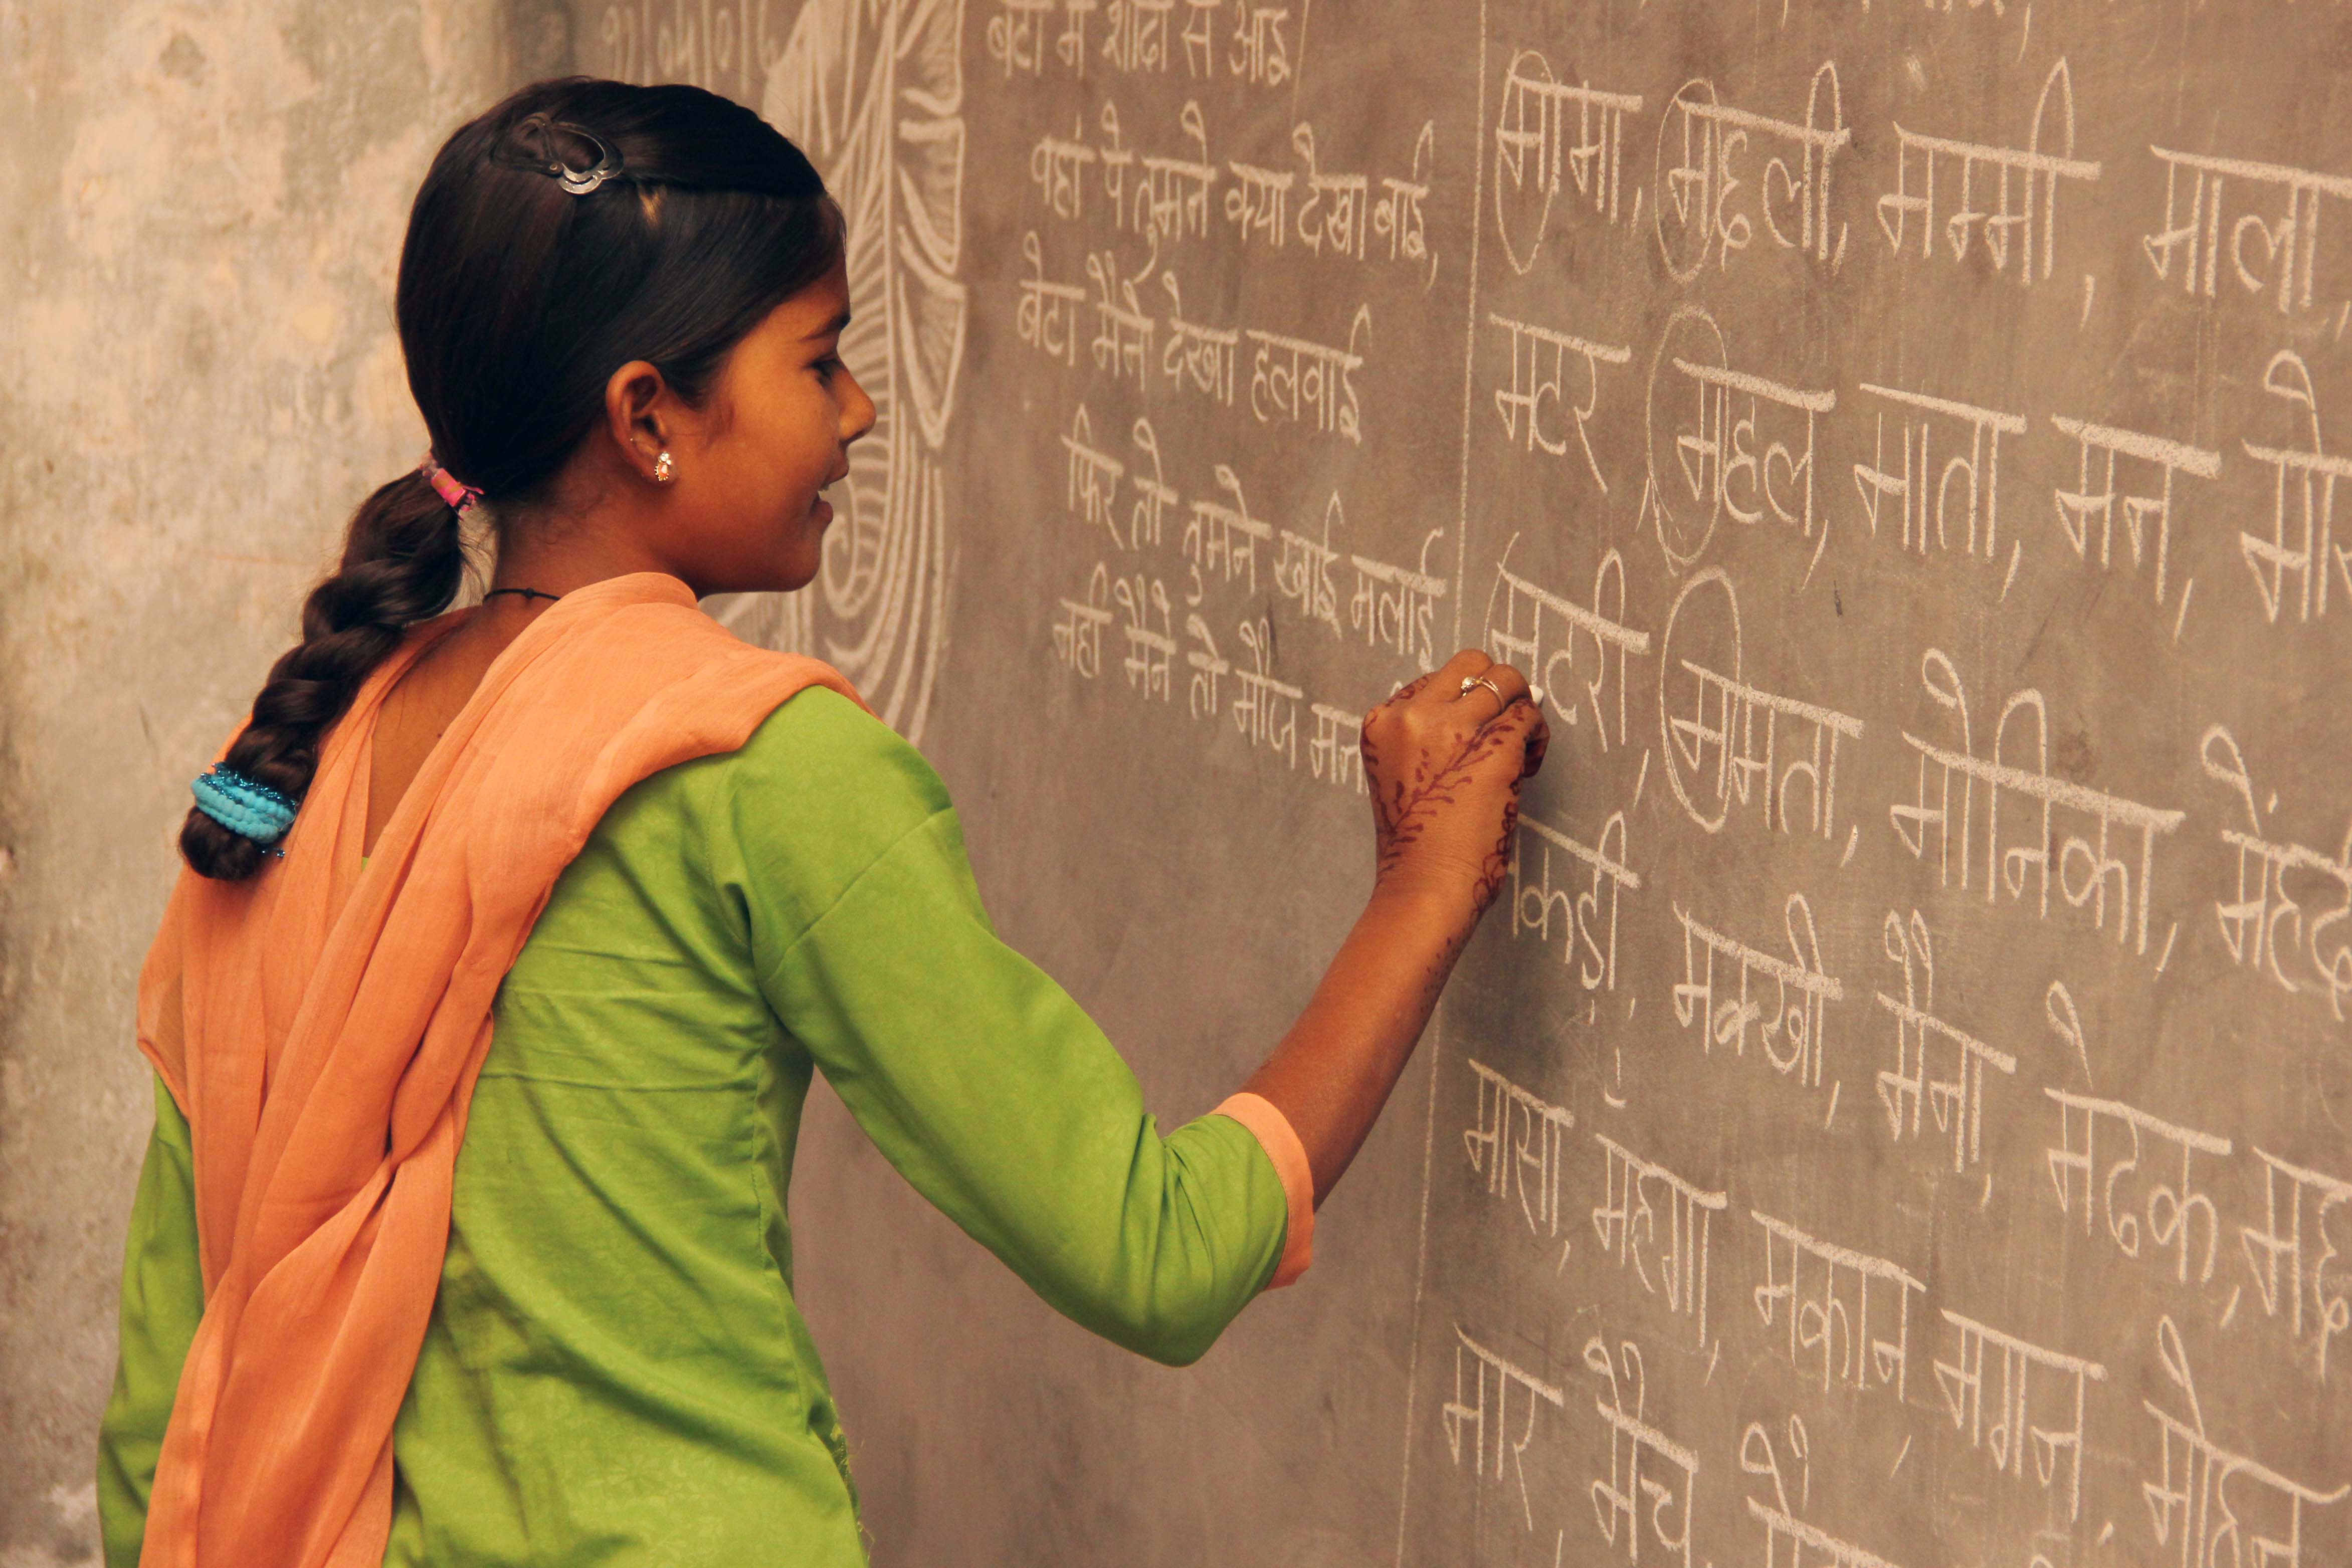 बेटा मै शादी से आइ
वहां पै तुमने क्या दैखा बाई,
बेटा मैने दैखा हलवाई
फिर तो तुमने खाई मलाई
नही मैने तो मौज मन
मामा, मछली, मम्मी, माला,
मटर, महल, माता, मन,
मटरी, ममता, मोनिका,
कडी, मक्खी, मैना, मेढक,
मासा, महगा, मकान, मगन, मोहन
मार, मैच,